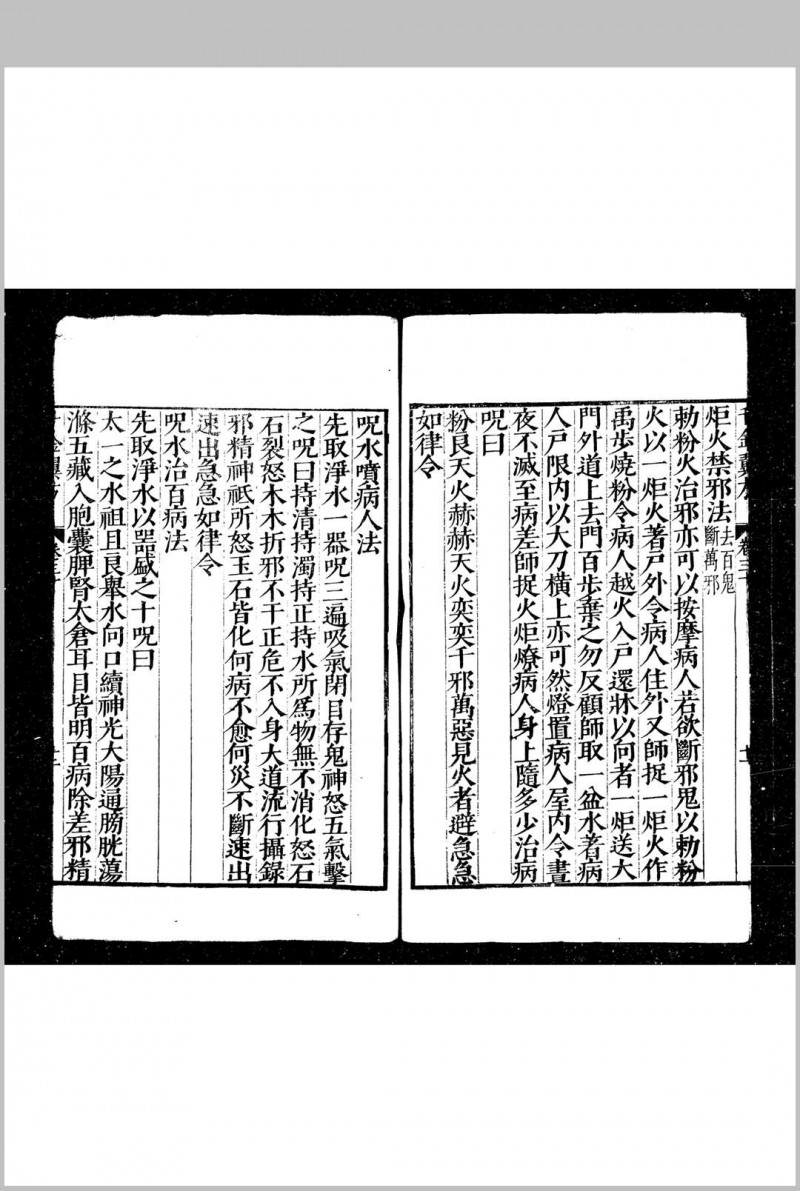 炬火禁邪法去百鬼斷萬邪
勑粉火治邪亦可以按摩病人若欲斷邪鬼以勑粉
火以一炬火著戶外令病人住外又師捉一炬火作
禹步燒粉令病人越火入戶還牀以向者一炬送大
門外道上去門百步棄之勿反顧師取一盆水著病
人戶限內以大刀橫上亦可然燈置病人屋內令晝
夜不滅至病差師捉火炬燎病人身上隨多少治病
呪曰
粉良天火赫赫天火奕奕千邪萬惡見火者避急急
如律令
呪水噴病人法
先取淨水一器呪三遍吸氣閉目存鬼神怒五氣擊
之呪曰持清持濁持正持水所爲物無不消化怒石
石裂怒木木折邪不干正危不入身大道流行攝録
邪精神祇所怒玉石皆化何病不愈何災不斷速出
速出急急如律令
呪水治百病法
先取淨水以器盛之十呪曰
太一之水祖且良舉水向口續神光大陽通膀胱蕩
滌五藏入胞囊脾腎太倉耳目皆明百病除差邪精